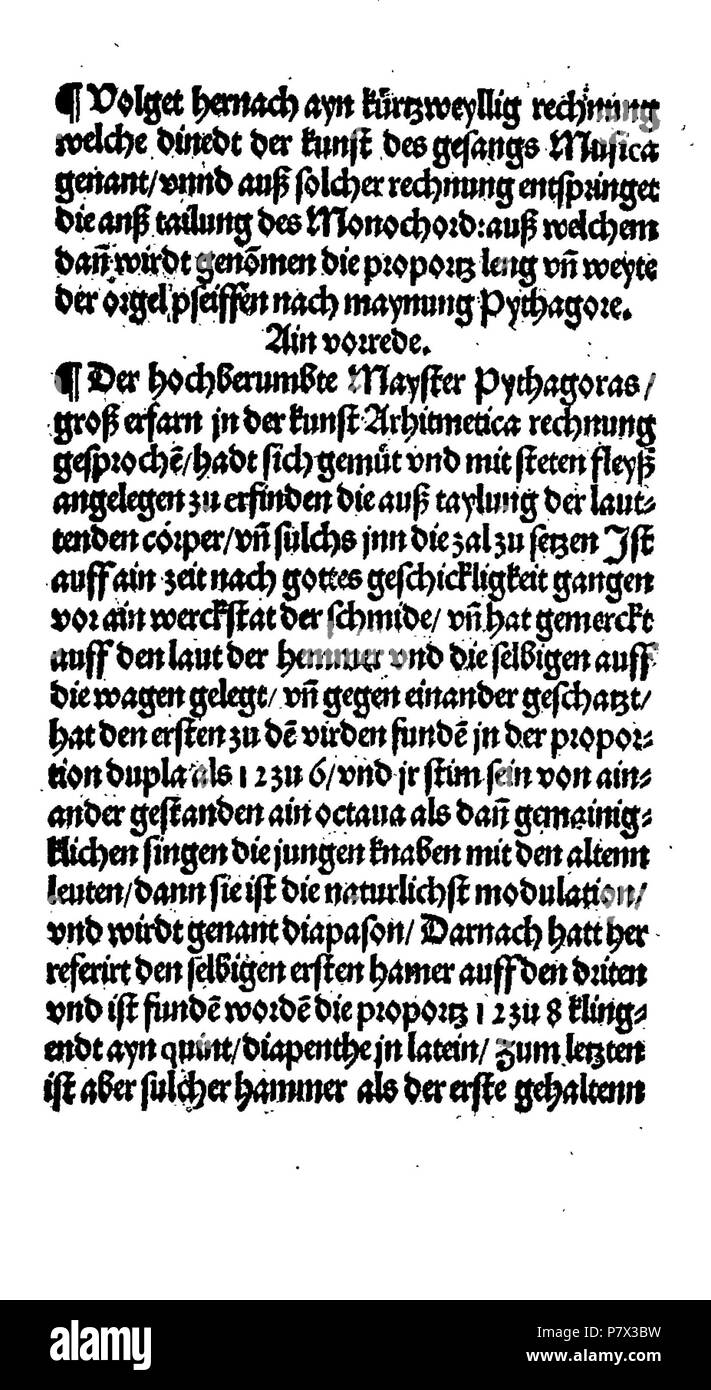 ¶ Volget hernach ayn kürtzweyllig rechnung
welche dinedt der kunst des gesangs Musica
genant/ vnnd auß solcher rechnung entspringet
die auß tailung des Monochord: auß welchem
dañ wirdt genōmen die proportz leng vñ weyte
der orgel pfeiffen nach maynung Pythagore.
Ain vorrede.
¶ Der hochberumbte Mayster Pythagoras/
groß erfarn jn der kunst Arhitmetica rechnung
gesprochē/ hadt sich gemüt vnd mit steten fleyß
angelegen zu erfinden die auß taylung der laut⸗
tenden córper/ vñ sulchs jnn die zal zu setzen Jst
auff ain zeit nach gottes geschickligkeit gangen
vor ain werckstat der schmide/ vñ hat gemerckt
auff den laut der hemmer vnd die selbigen auff
die wagen gelegt/ vñ gegen einander geschatzt/
hat den ersten zu dē virden fundē jn der propor⸗
tion dupla als 1 2 zu 6/ vnd jr stim sein von ain⸗
ander gestanden ain octaua als dañ gemainig⸗
klichen singen die jungen knaben mit den altenn
leuten/ dann sie ist die naturlichst modulation/
vnd wirdt genant diapason/ Darnach hatt her
referirt den selbigen ersten hamer auff den driten
vnd ist fundē wordē die proportz 1 2 zu 8 kling⸗
endt ayn quint/ diapenthe jn latein/ Zum letzten
ist aber sulcher hammer als der erste gehaltenn
alamy
Image ID: P7X3BW
www.alamy.com